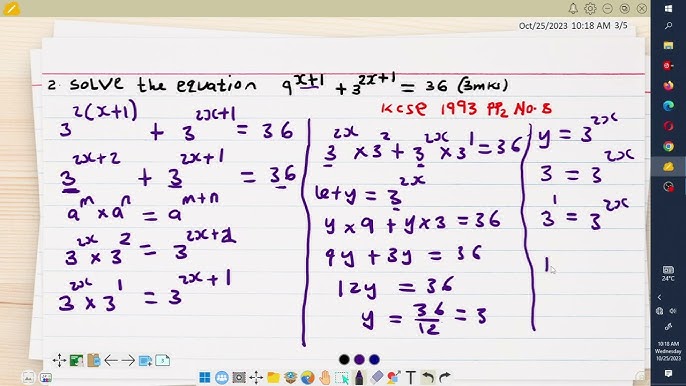 Oct/25/2023 10:18 AM 3/5
2. Solve the equation 9^{x+1} + 3^{2x+1} = 36 (3mks)
KCSE 1993 PP2 No. 5
3^{2(x+1)} + 3^{2x+1} = 36
3^{2x+2} + 3^{2x+1} = 36
a^m × a^n = a^{m+n}
3^{2x} × 3^2 = 3^{2x+2}
3^{2x} × 3^1 = 3^{2x+1}
3^{2x} × 3^2 + 3^{2x} × 3^1 = 36
let y = 3^{2x}
y × 9 + y × 3 = 36
9y + 3y = 36
12y = 36
y = 36/12 = 3
y = 3^{2x}
3 = 3^{2x}
3^1 = 3^{2x}
1
24°C
10:18 AM
Wednesday
10/25/2023